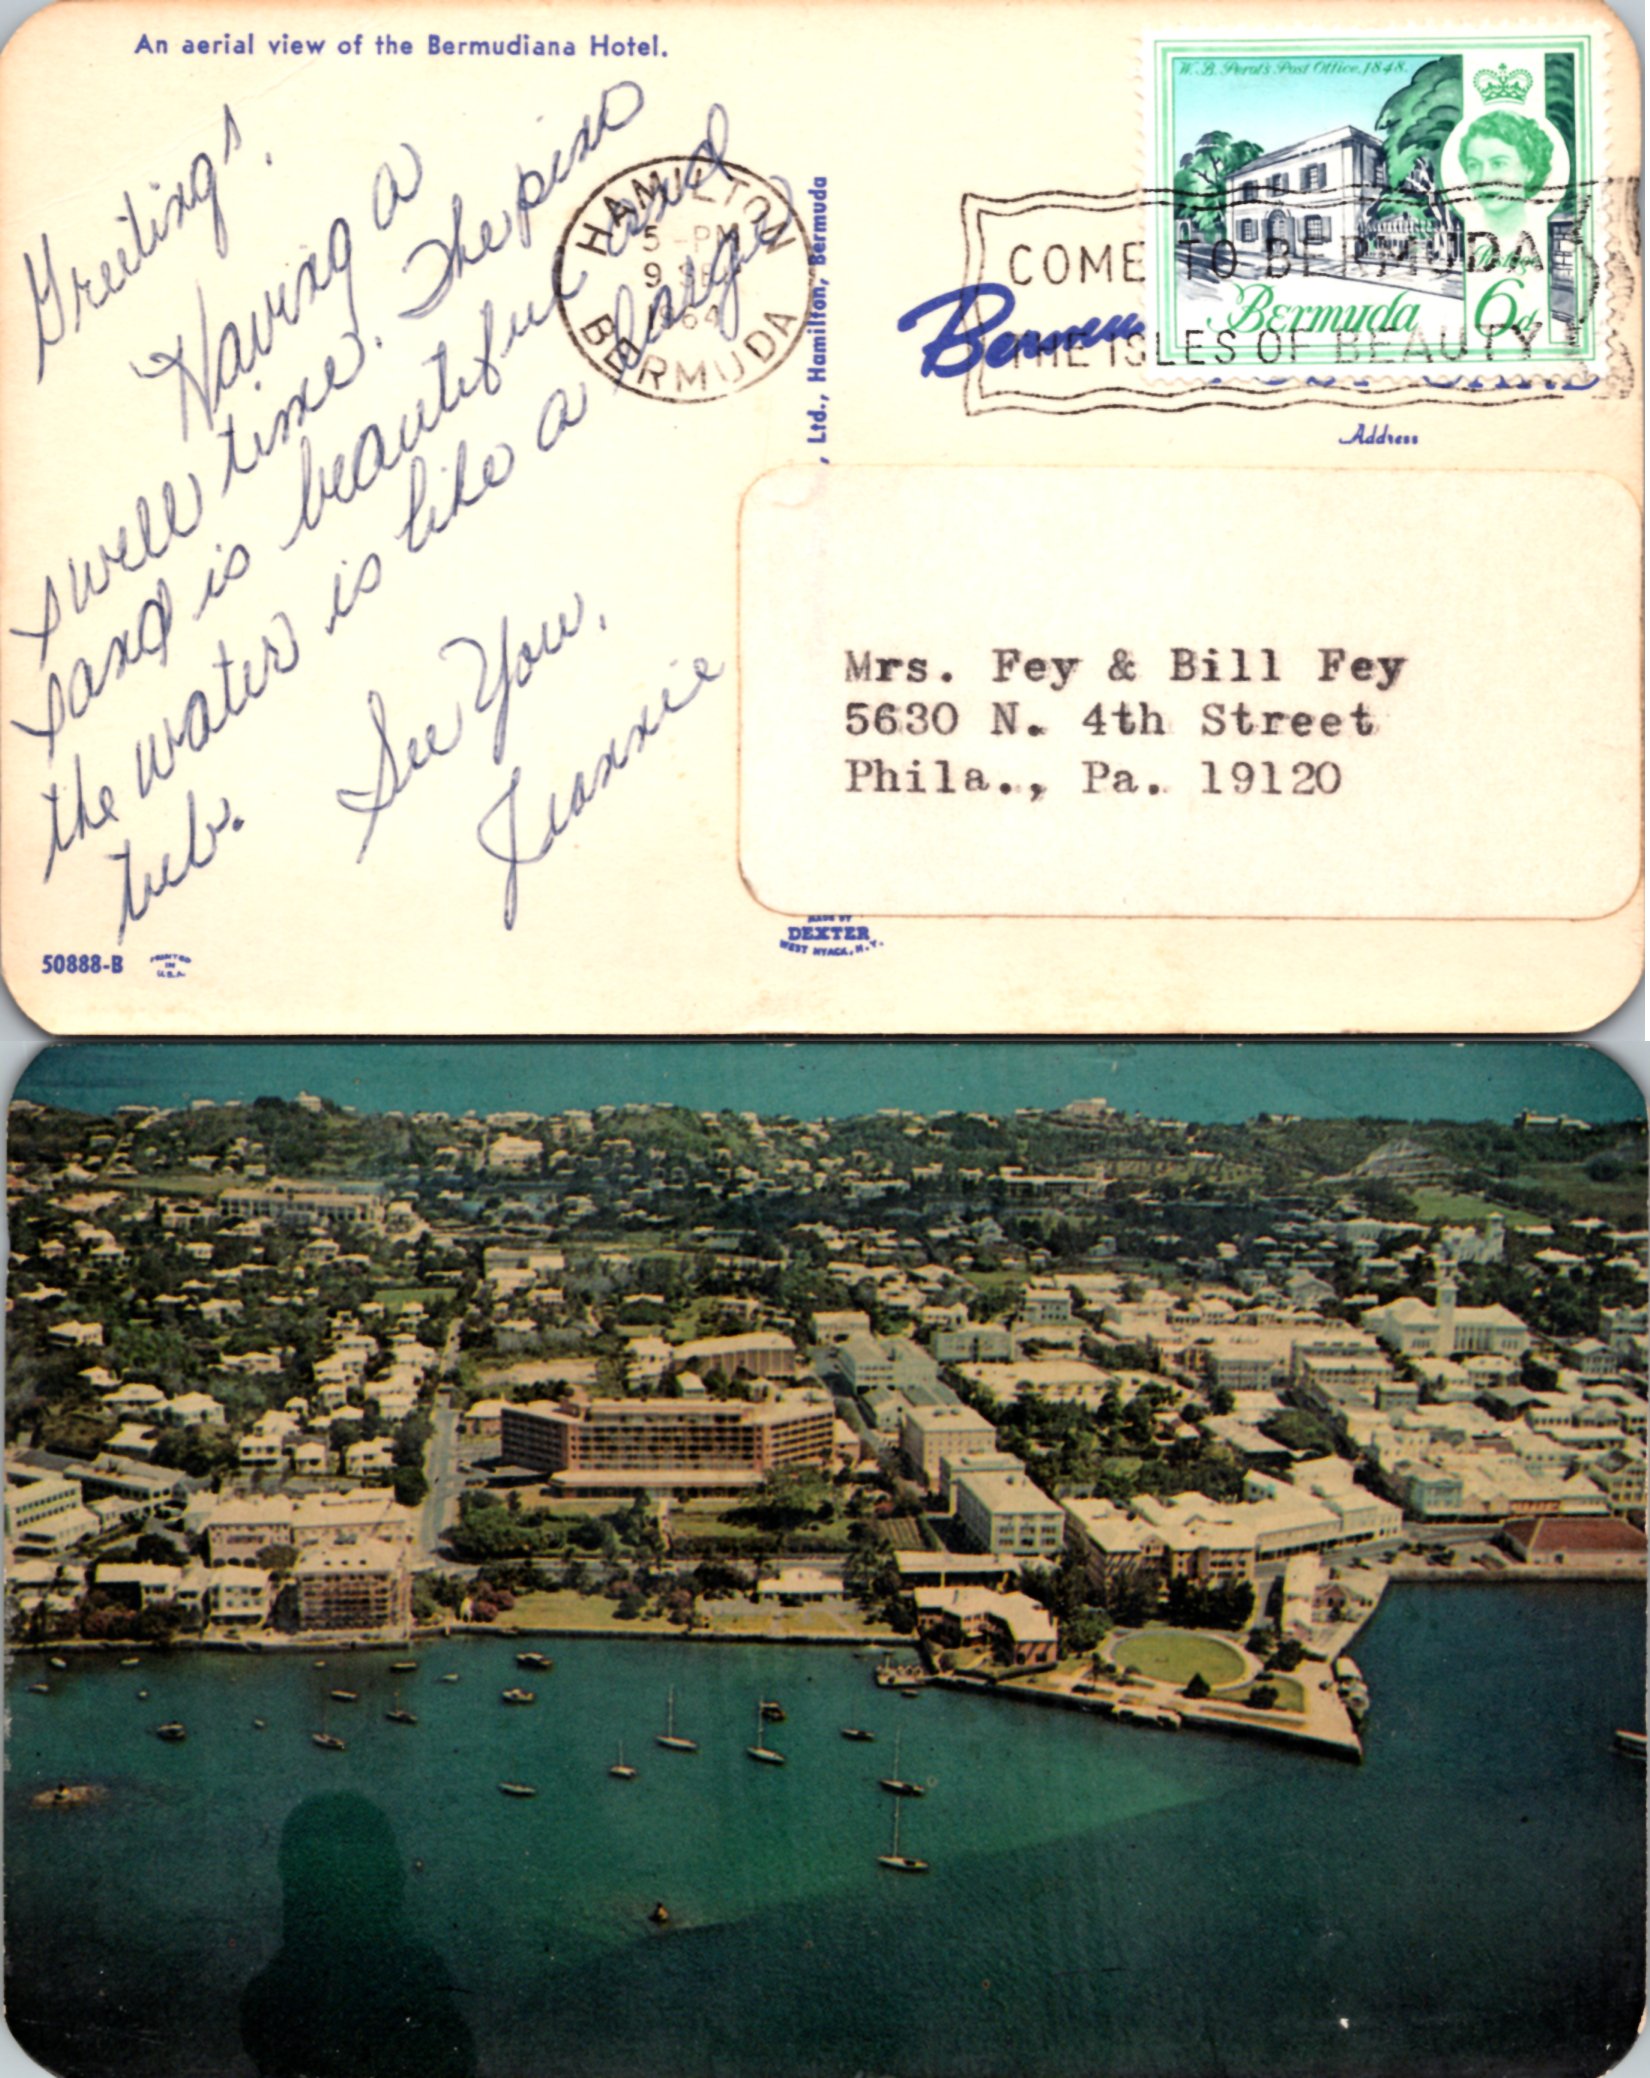 An aerial view of the Bermudiana Hotel.
Greetings,
Having a
swell time. The pink
sand is beautiful and
the water is like a large
tub.
See You,
Jeannie
HAMILTON
5 - PM
9 SE
1964
BERMUDA
, Ltd., Hamilton, Bermuda
W. B. Perot's Post Office, 1848.
Postage
Bermuda
6d
COME TO BERMUDA
THE ISLES OF BEAUTY
Address
Mrs. Fey & Bill Fey
5630 N. 4th Street
Phila., Pa. 19120
50888-B
PRINTED
IN
U.S.A.
MADE BY
DEXTER
WEST NYACK, N.Y.